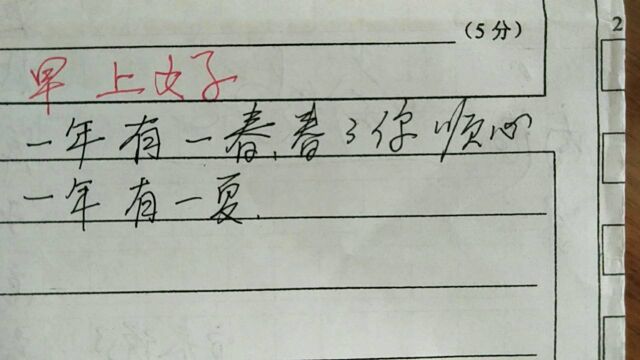 (5分)
2
早上好
一年有一春,春了你顺心
一年有一夏.